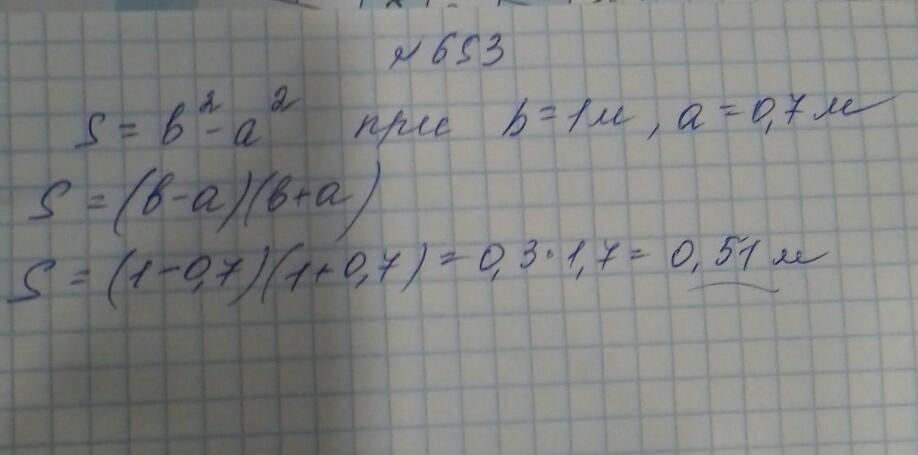 № 653
S = b² - a² при b = 1 м, a = 0,7 м
S = (b-a)(b+a)
S = (1-0,7)(1+0,7) = 0,3·1,7 = 0,51 м